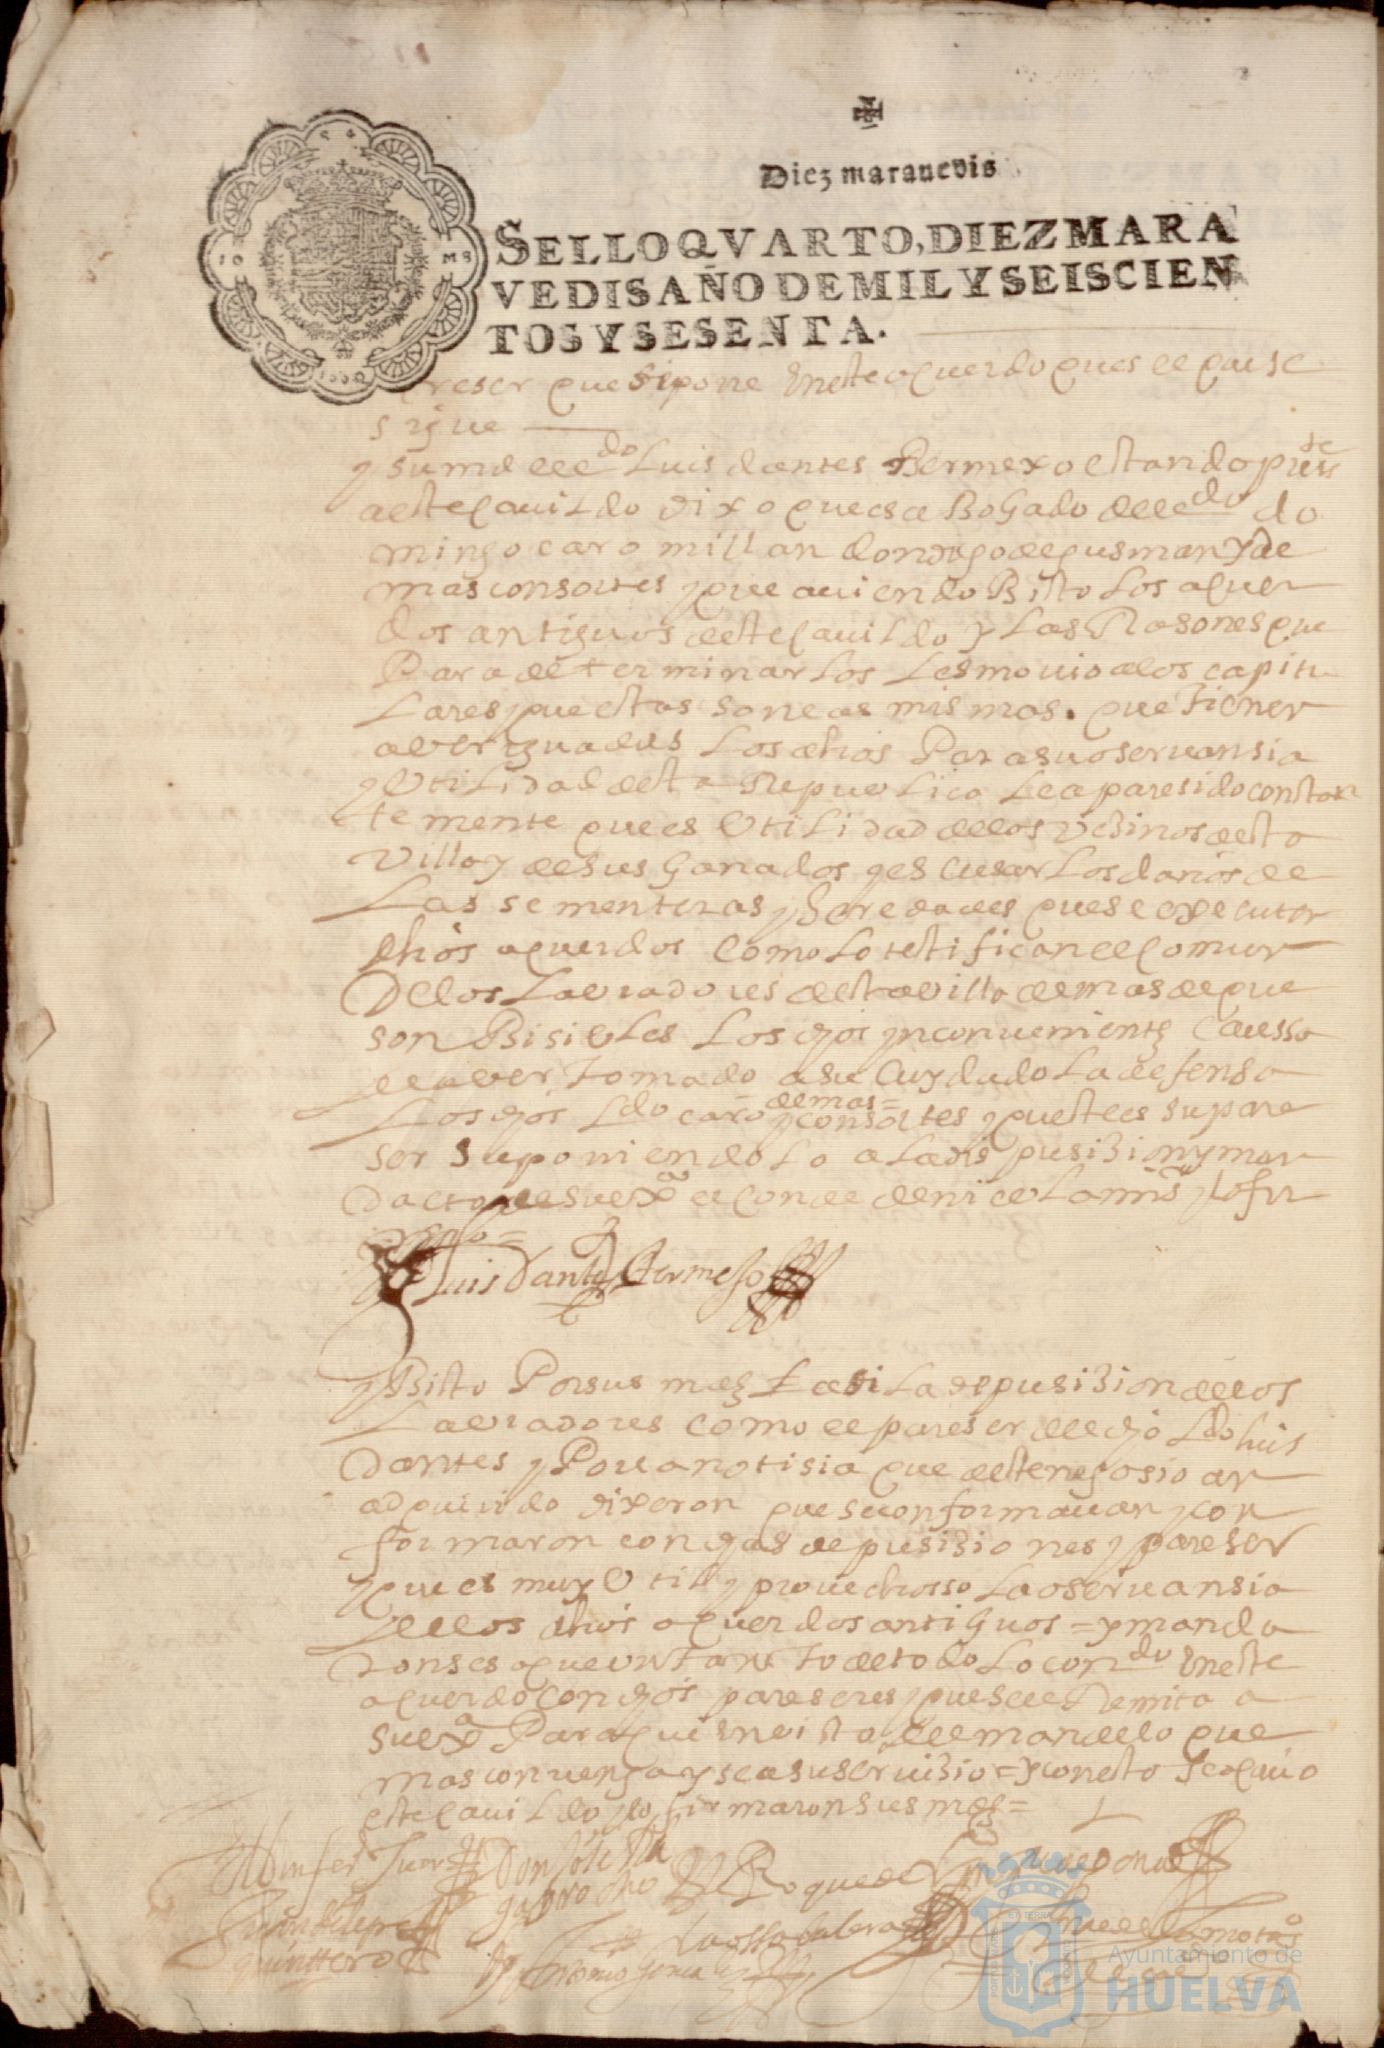 Diez maravedis
SELLO QVARTO, DIEZ MARA
VEDIS AÑO DE MIL Y SEISCIEN
TOS Y SESENTA.
reser que se pone en este aquerdo que es el que se
sigue
y su md el ldo Luis dantes Bermexo estando preste
a este cavildo dixo que es abogado del ldo do
mingo caro millan don diego de gusman y de
mas consortes y que aviendo Bisto los aquer
dos antiguos deste cavildo y las Rasones que
Para determinarlos les movio a los capitu
lares y que estas son las mismas que tienen
aberiguadas los dhos Para su oservansia
y Utilidad desta Republica le a paresido constan
temente que es Utilidad de los vesinos desta
villa y de sus ganados y escusar los daños de
las sementeras y heredades que se executen
dhos aquerdos como lo testifican el comun
de los Labradores desta villa demas de que
son Bisibles los dhos ynconvenientes caussa
de aber tomado a su cuydado la defensa
Los dhos Ldo caro y demas consortes y que este es su pare
ser suponiendolo a la dispusision y man
dacto de su exa el conde de niebla mi sr y lo fir
mo =
Luis Dantes Bermejo
y Bisto Por sus mds asi la depusision de los
Labradores como el pareser del dho Ldo luis
dantes y Por la notisia que deste negosio an
adquirido dixeron que se conformavan y con
formaron con dhas depusisiones y pareser
y que es muy Util y provechosso la oservansia
de los dhos aquerdos antiguos = y manda
ron se saque un tanto de todo lo condo en este
aquerdo con dhos pareseres y que se le Remita a
su exa Para que en vista del mande lo que
mas convenga y sea su servisio = y con esto se acavo
este cavildo y lo firmaron sus mds =
Roque de
quinttero
Antonio gonzalez
Ayuntamiento de
HUELVA